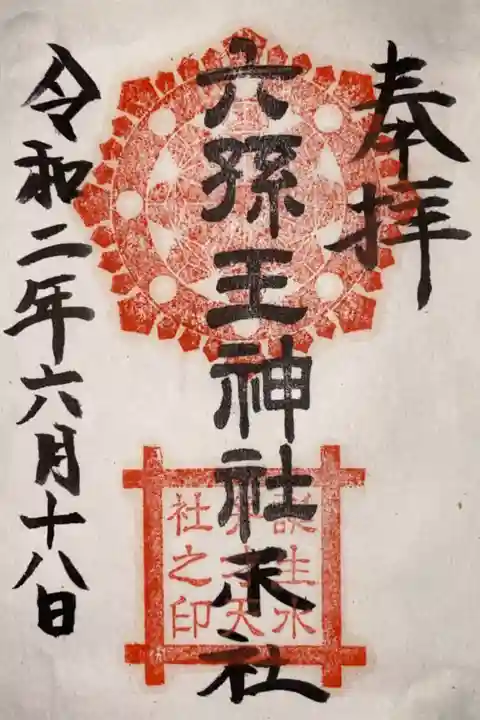 奉拝
六孫王神社末社
誕生水
弁才天
社之印
令和二年六月十八日